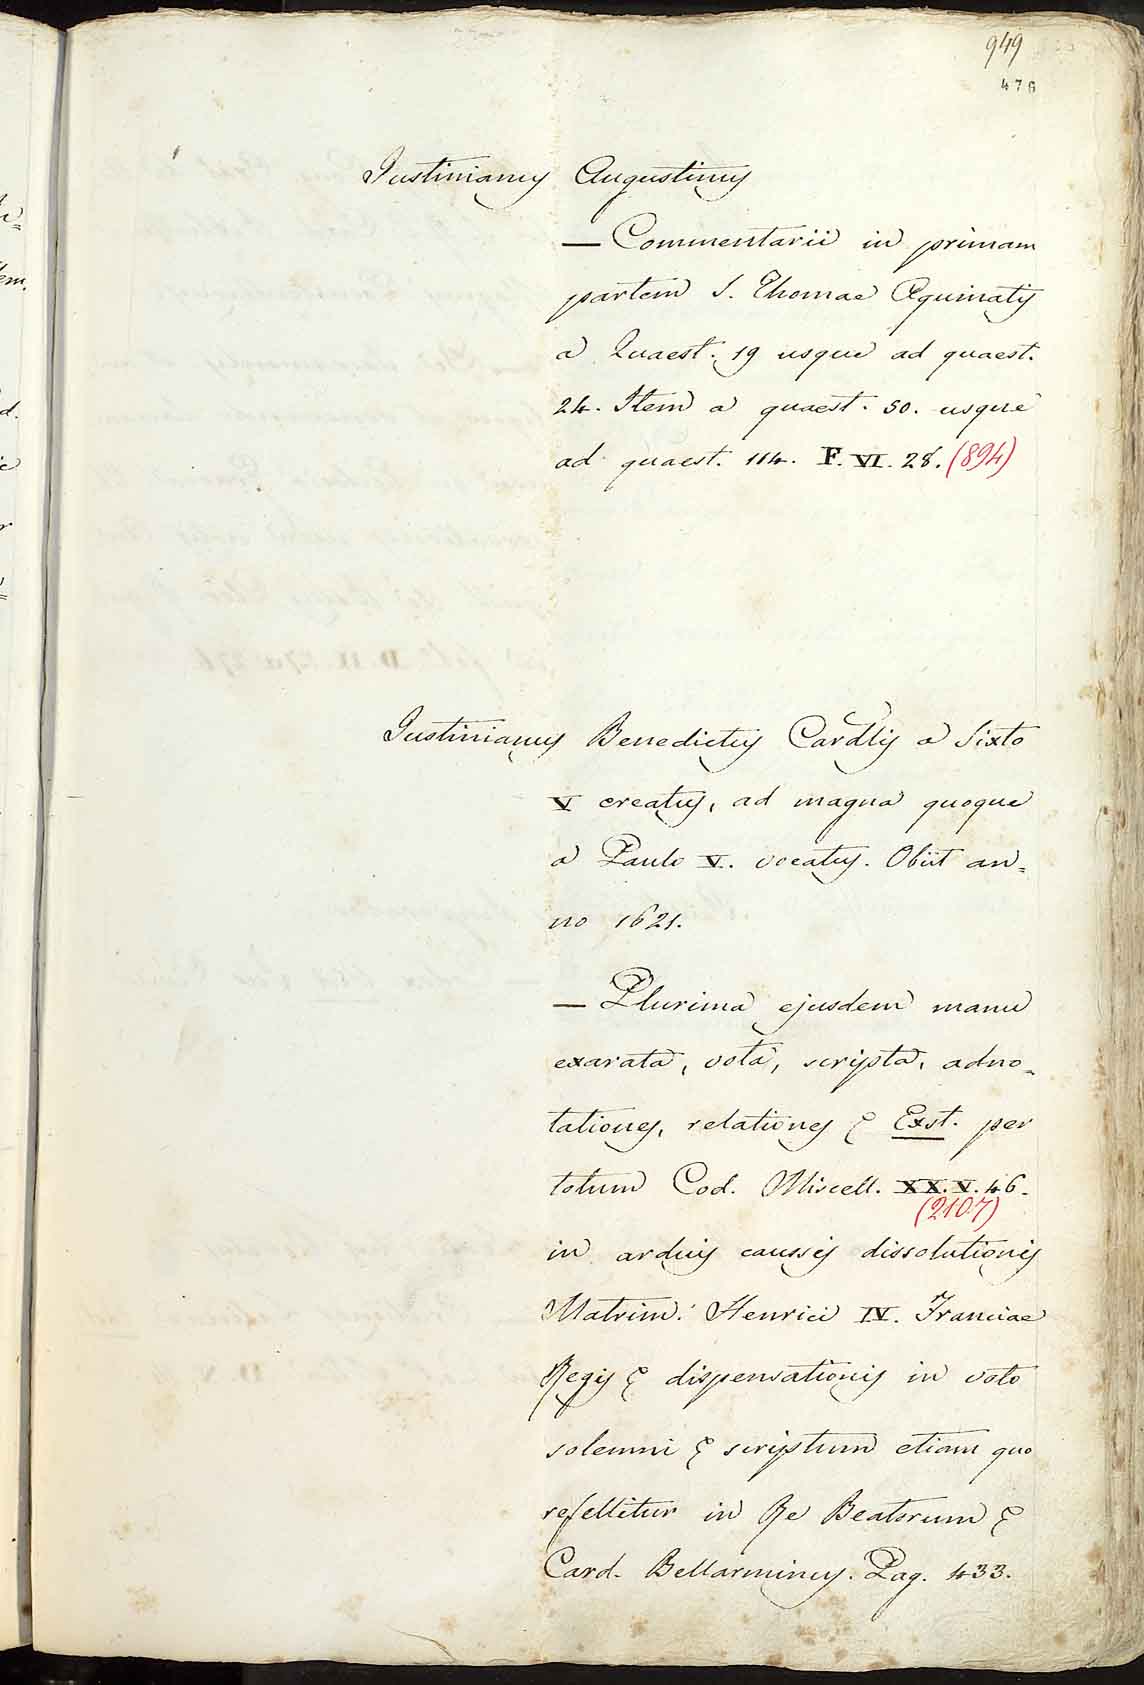 949
476
Iustinianus Augustinus
— Commentarii in primam
partem S. Thomae Aquinatis
a Quaest. 19 usque ad quaest.
24. Item a quaest. 50. usque
ad quaest. 114. F. VI. 28. (894)
Iustinianus Benedictus Cardlis a Sixto
V creatus, ad magna quoque
a Paulo V. vocatus. Obiit an=
no 1621.
— Plurima ejusdem manu
exarata, vota, scripta, adno=
tationes, relationes & Exst. per
totum Cod. Miscell. XX. V. 46.
(2107)
in arduis caussis dissolutionis
Matrim: Henrici IV. Franciae
Regis & dispensationis in voto
solemni & scriptum etiam quo
refellitur in Re Beatorum &
Card. Bellarminus. Pag. 433.